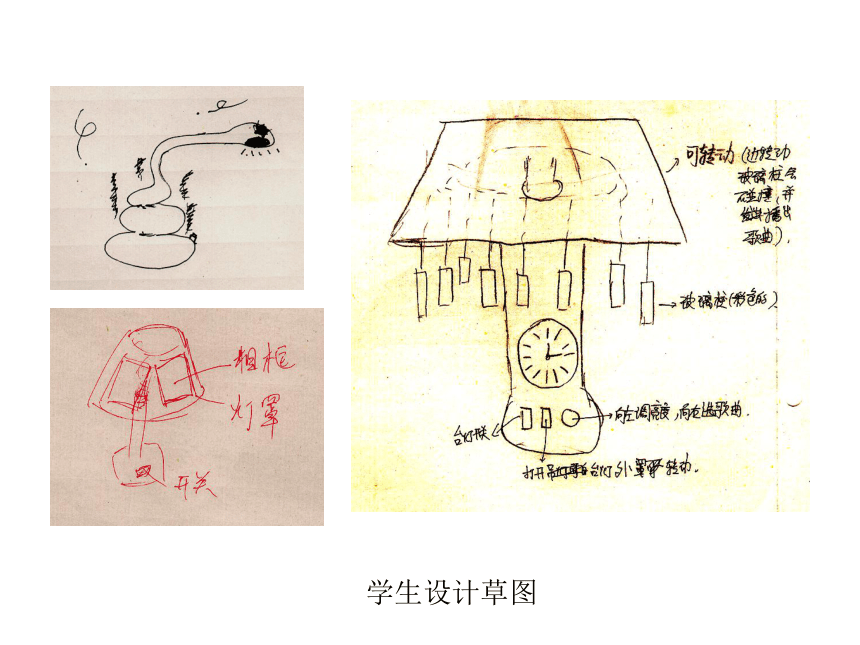 可转动(边转动
玻璃柱会
碰撞,并
播出
歌曲).
玻璃柱(彩色的)
相框
灯罩
开关
台灯开关
向左调亮度,向右选歌曲.
打开台灯外罩转动.
学生设计草图